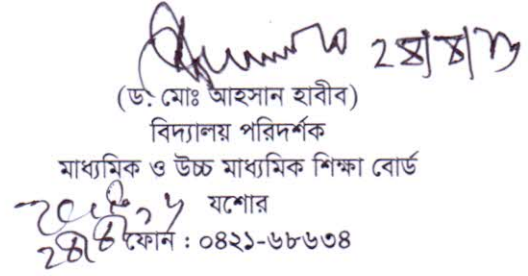 (ড. মোঃ আহসান হাবীব)
বিদ্যালয় পরিদর্শক
মাধ্যমিক ও উচ্চ মাধ্যমিক শিক্ষা বোর্ড
যশোর
ফোন : ০৪২১-৬৮৬৩৪